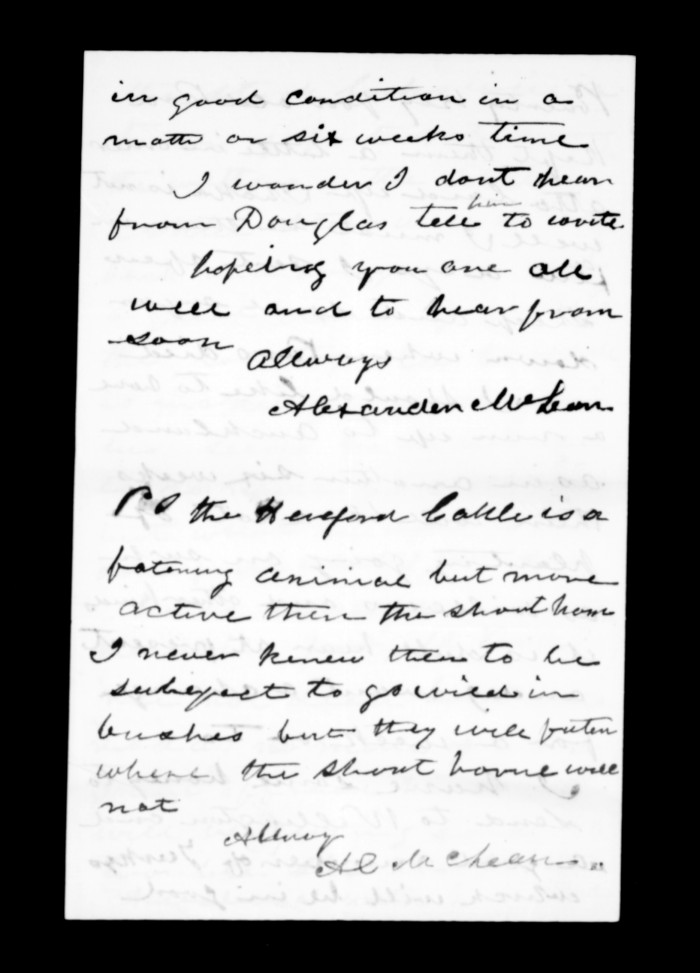 in good condition in a
moth or six weeks time
I wonder I dont hear
from Douglas tell him to write
hopeing you are all
well and to hear from
soon
Allways
Alexander McLean
PS the Hereford Cattle is a
fatening animal but more
active then the short horn
I never knew then to be
subgect to go wild in
bushes but they will faten
where the short horne will
not
Allway
Al McLean